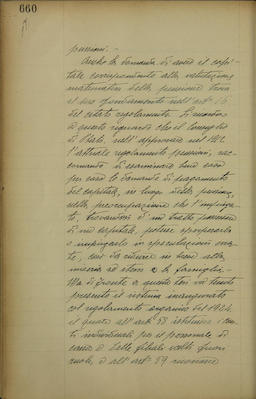 660
pensioni. -
Anche la domanda di avere il capi-
tale corrispondente alla valutazione
matematica della pensione trova
il suo fondamento nell'art. 16
del citato regolamento. Si
a questo riguardo che il Consiglio
di Stato, nell'approvare nel 1912
l'attuale regolamento pensioni, rac-
comandò di esaminare bene caso
per caso le domande di pagamento
del capitale, in luogo della pensione,
nella preoccupazione che l'impiega-
to, trovandosi di un tratto possessore
di un capitale, potesse sperperarlo
o impiegarlo in speculazioni erra-
te, così da ridurre in breve alla
miseria sé stesso e la famiglia. -
Ma di fronte a questa tesi va tenuto
presente il sistema inaugurato
col regolamento organico del 1924
il quale all'art. 58 istituisce i con-
ti individuali per il personale di
cassa e delle filiali
e all'art. 59